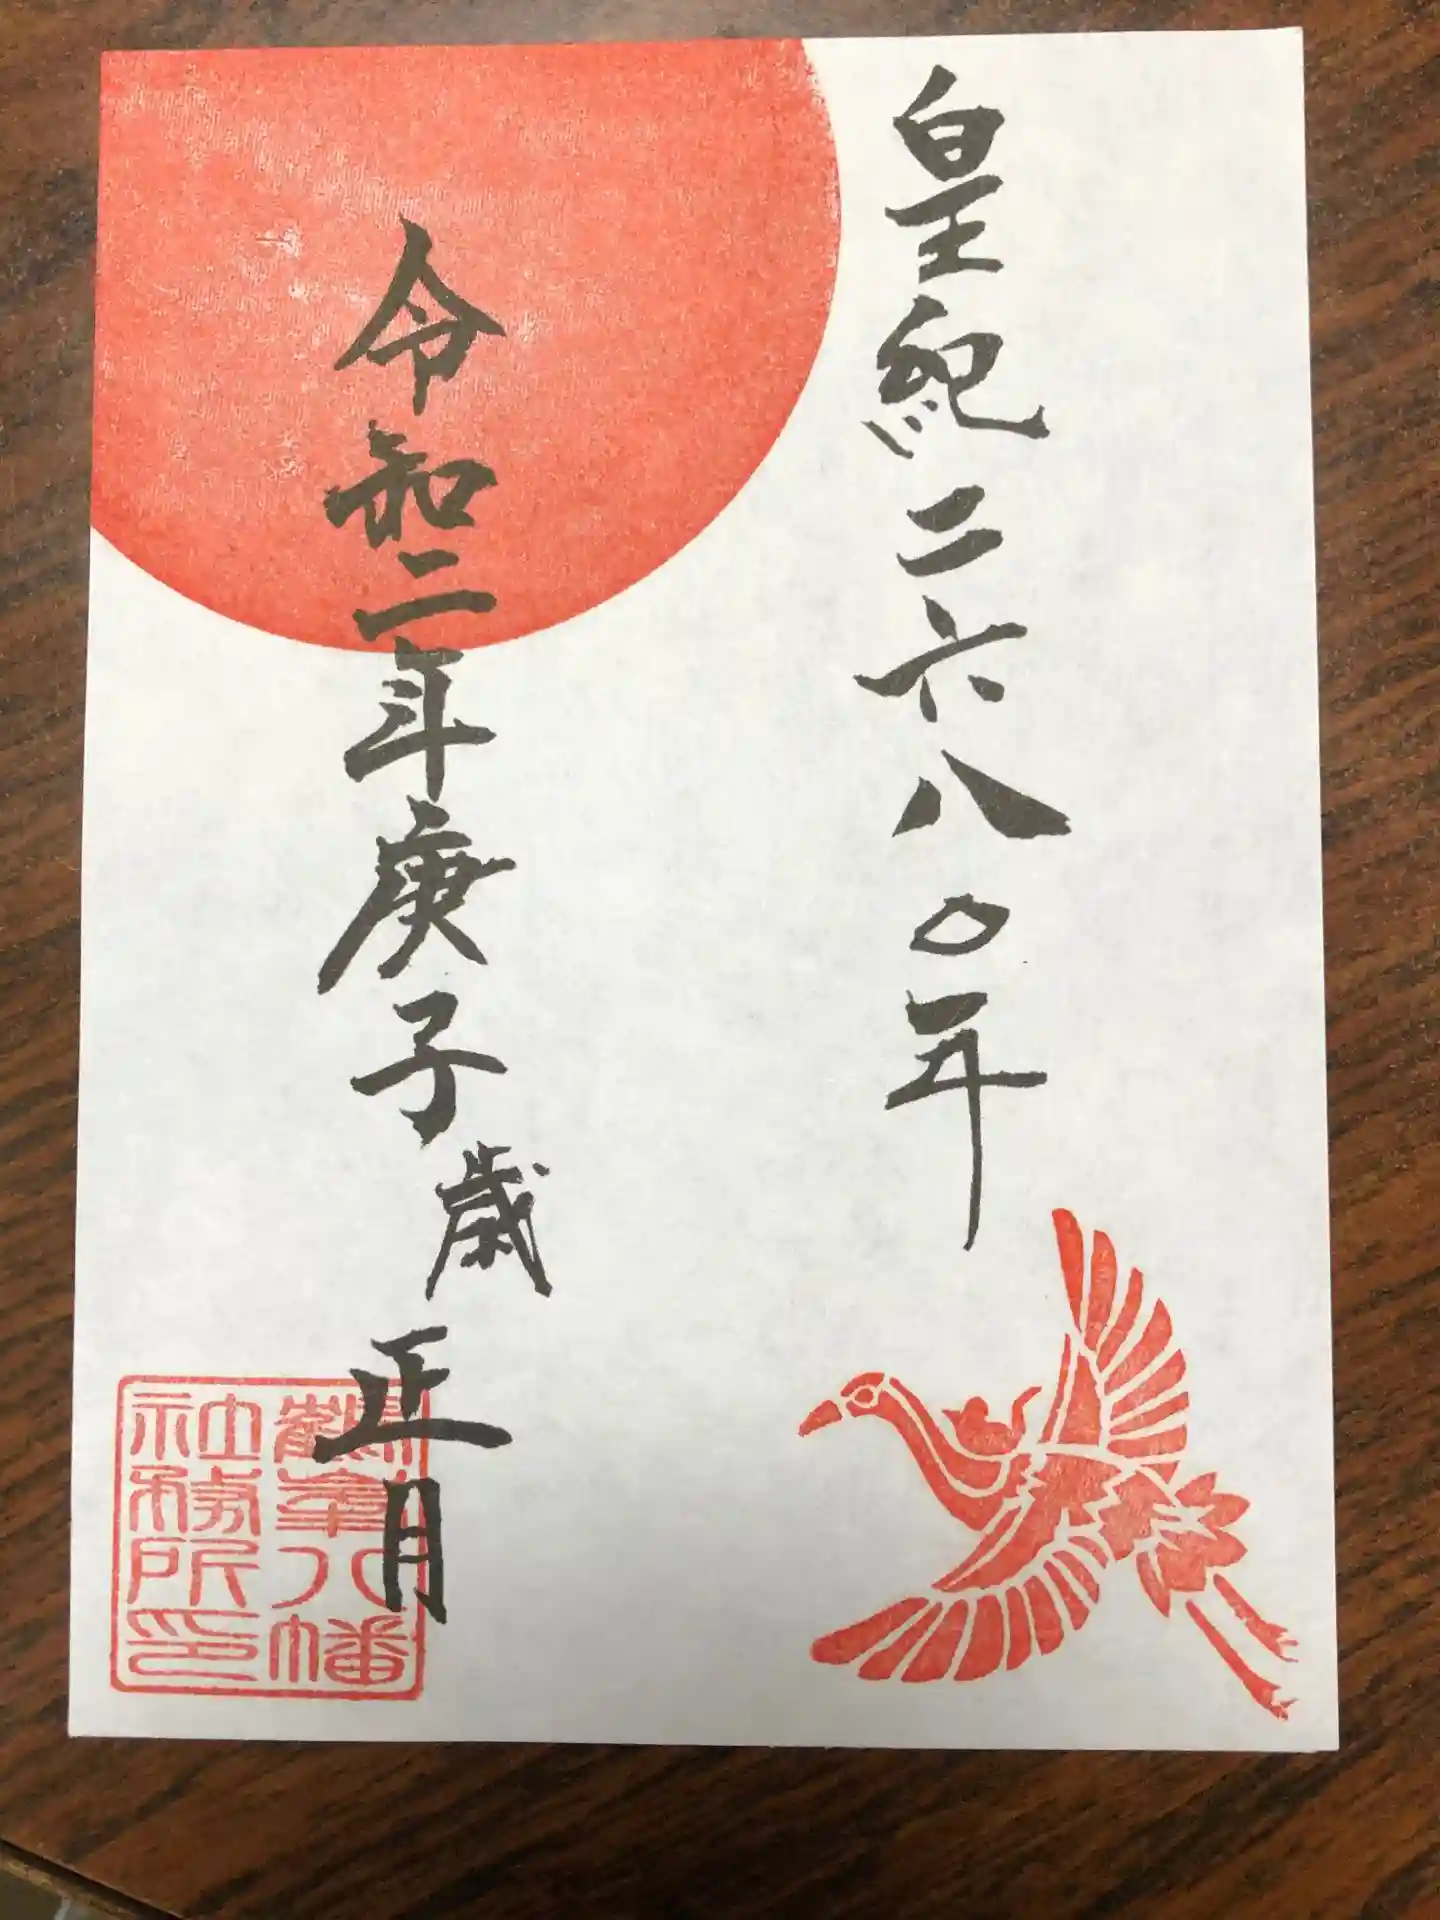 皇紀二六八〇年
令和二年庚子歳 正月
鶴峯八幡
社務所印